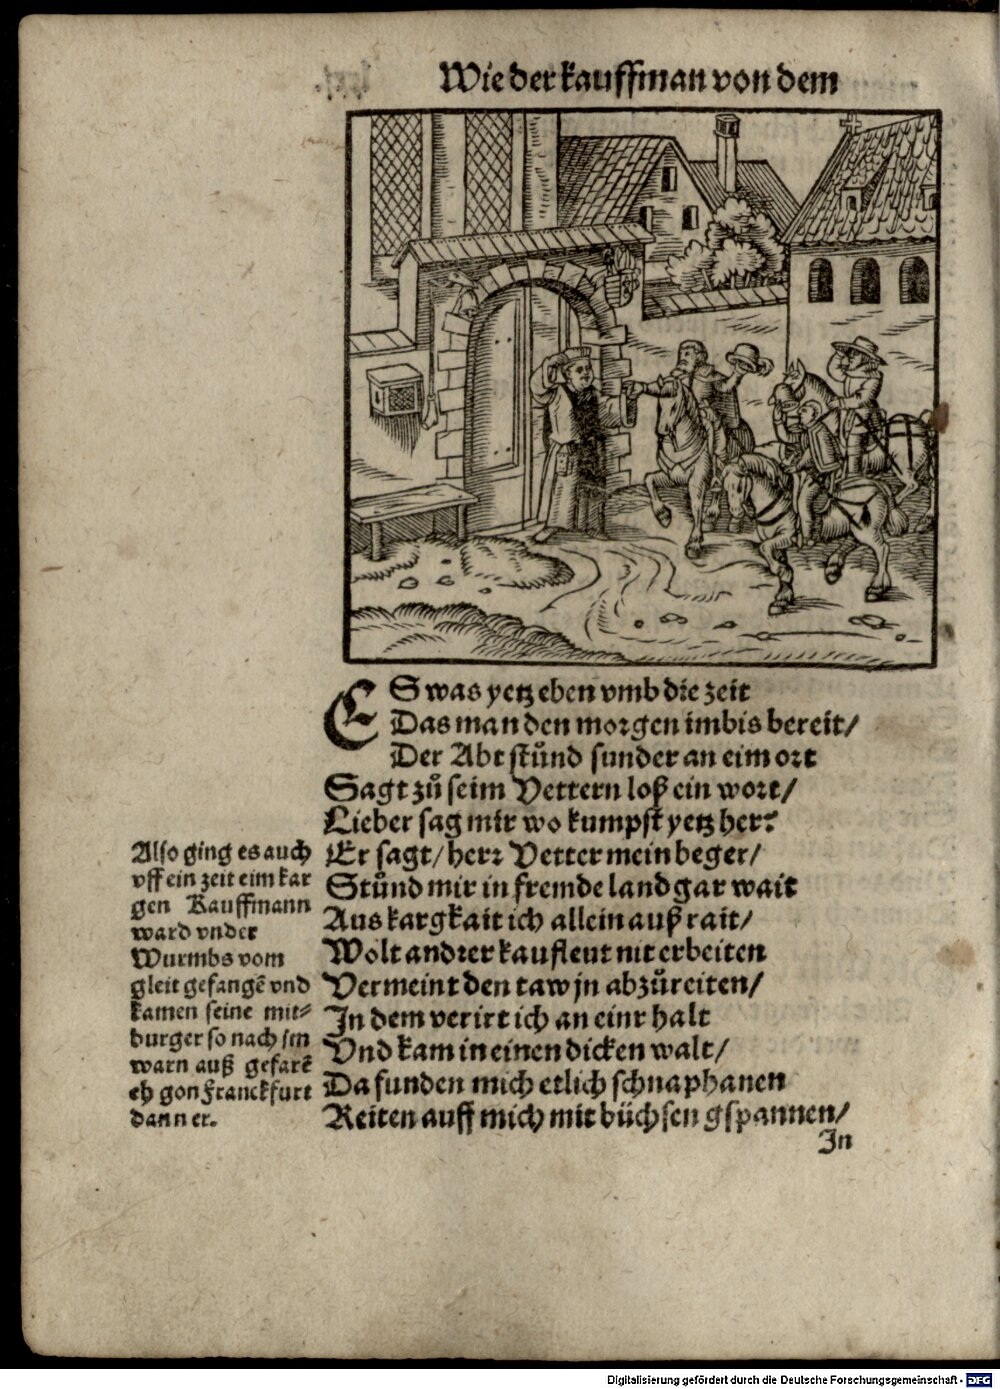 Wie der kauffman von dem
ES was yetz eben vmb die zeit
Das man den morgen imbis bereit/
Der Abt stůnd sunder an eim ort
Sagt zů seim Vettern loß ein wort/
Lieber sag mir wo kumpst yetz her?
Er sagt/ herr Vetter mein beger/
Stůnd mir in fremde land gar wait
Aus kargkait ich allein auß rait/
Wolt andrer kaufleut nit erbeiten
Vermeint den taw jn abzůreiten/
In dem verirt ich an einr halt
Vnd kam in einen dicken walt/
Da funden mich etlich schnaphanen
Reiten auff mich mit büchsen gspannen/
In
Also ging es auch
vff ein zeit eim kar
gen Kauffmann
ward vnder
Wurmbs vom
gleit gefangē vnd
kamen seine mit⸗
burger so nach jm
warn auß gefarē
eh gon Franckfurt
dann er.
Digitalisierung gefördert durch die Deutsche Forschungsgemeinschaft - DFG